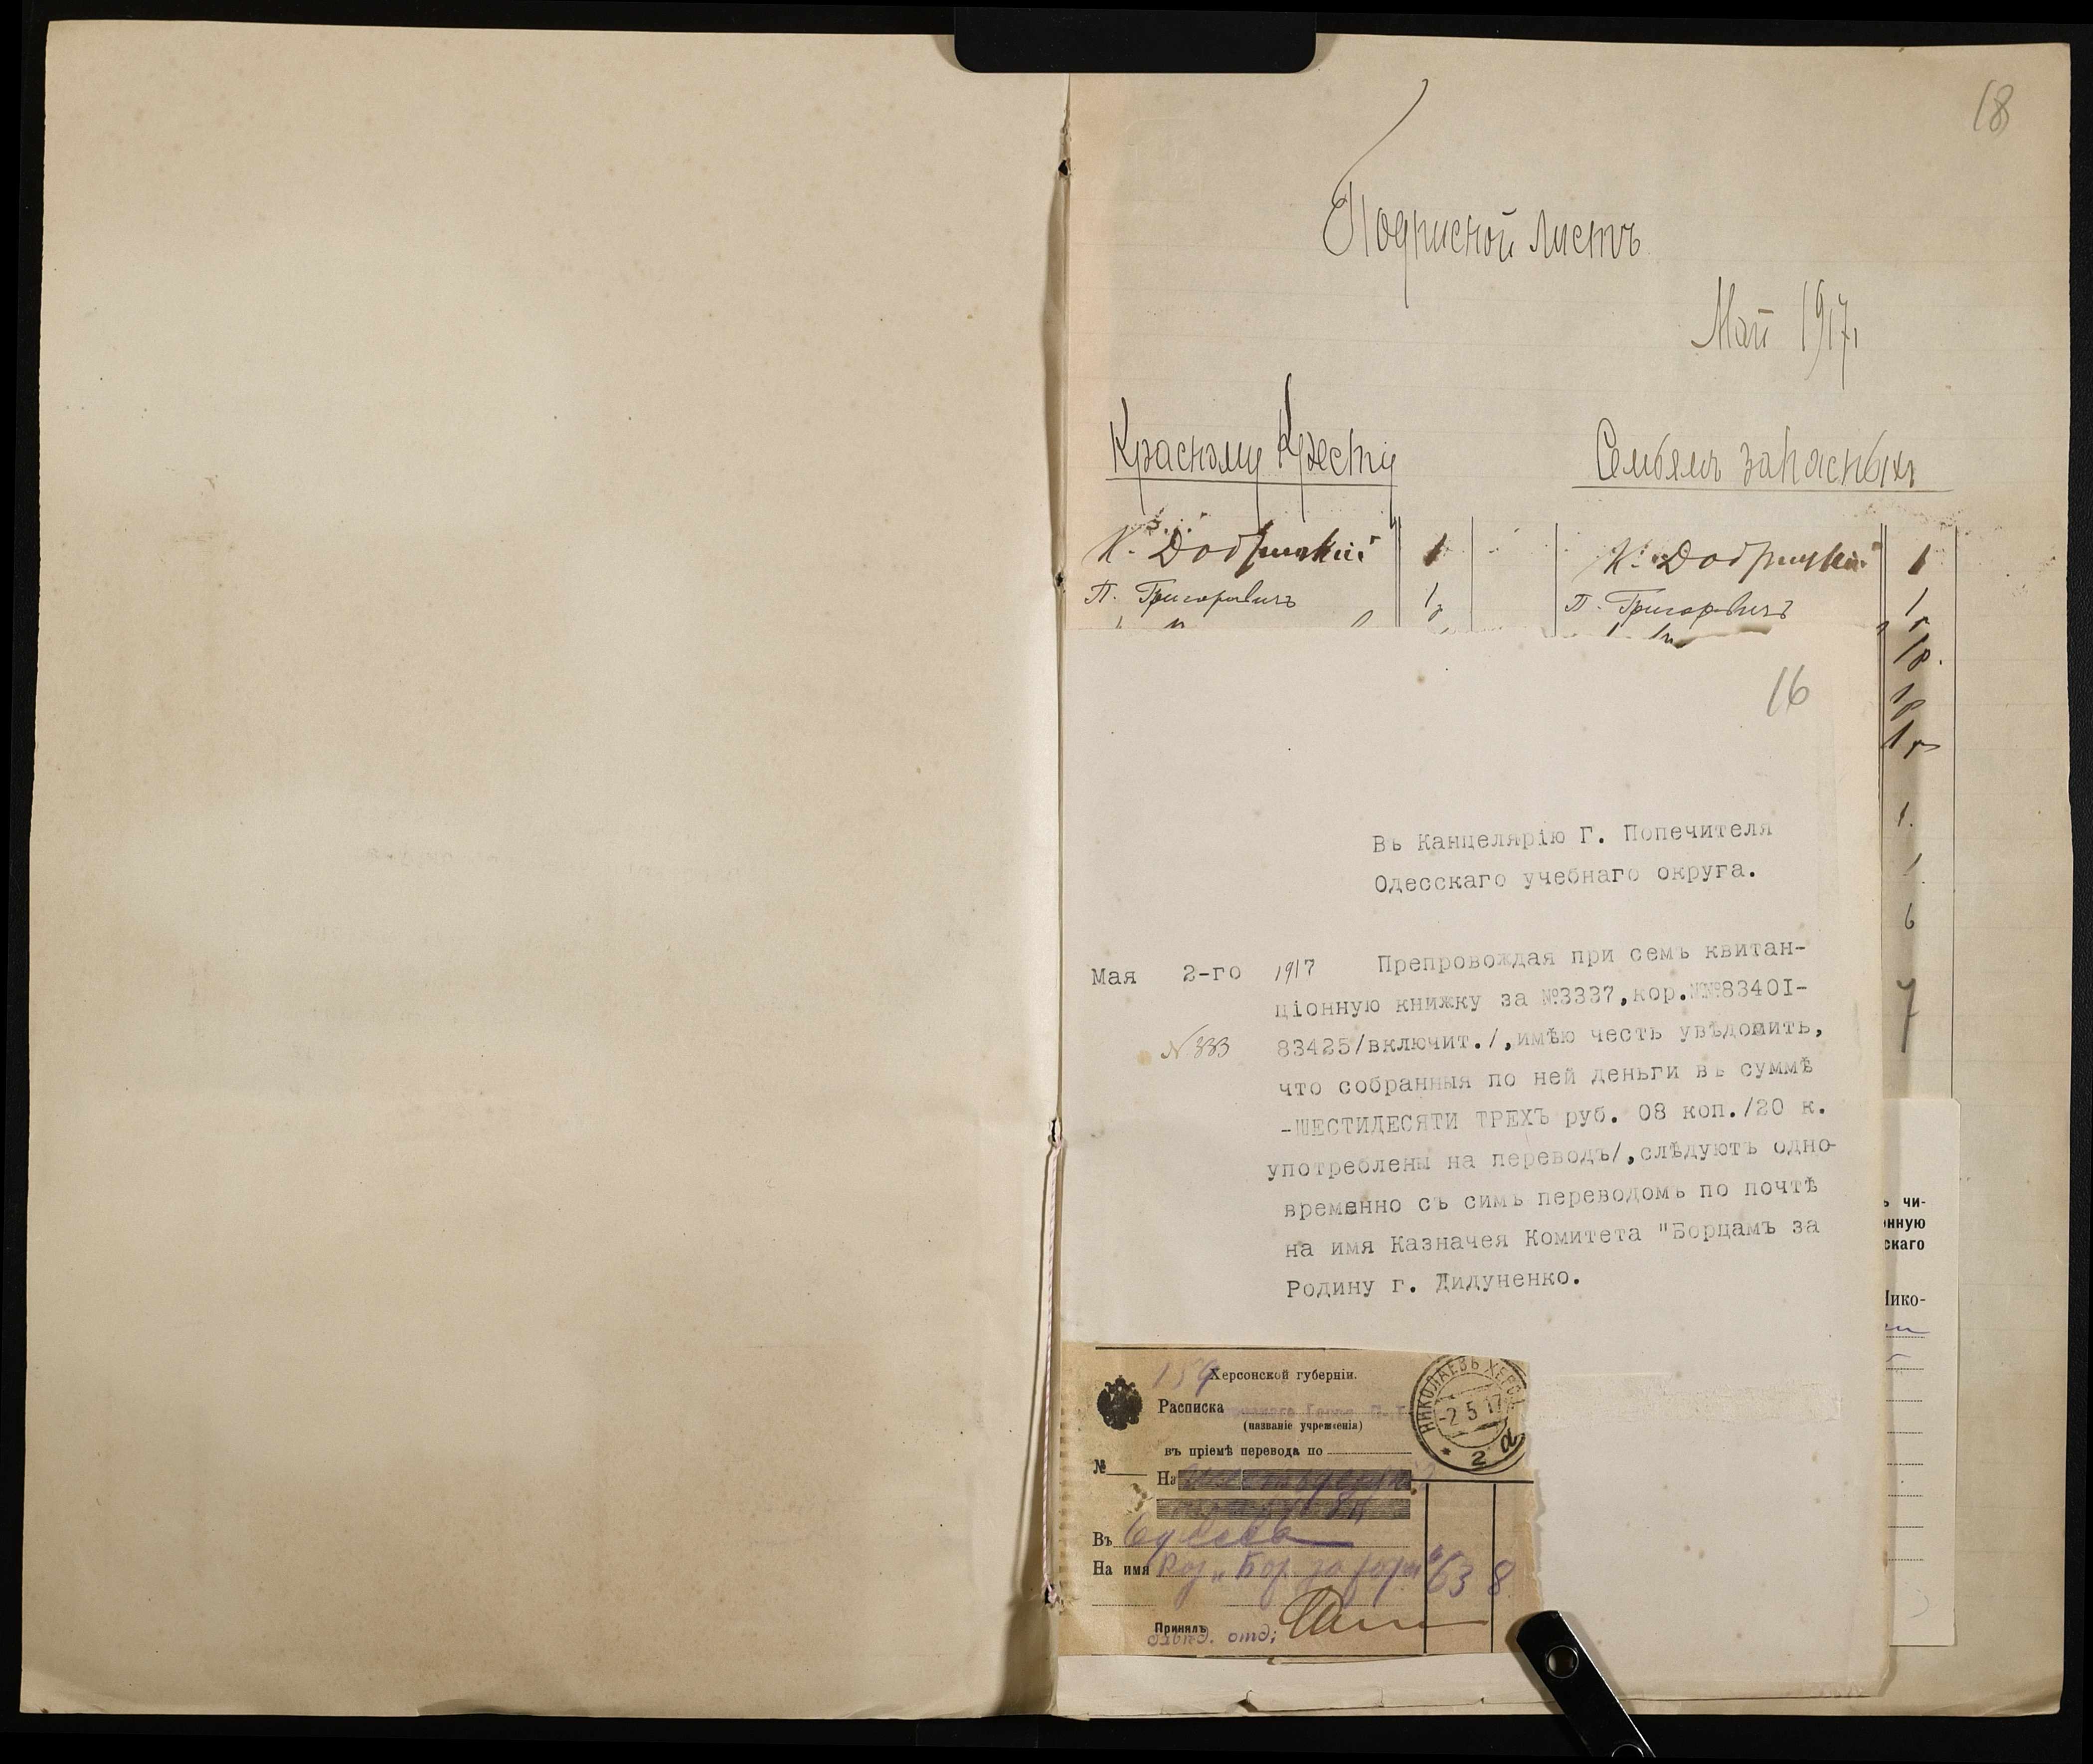 18
Подписной листъ
Май 1917г
Красному Кресту
Семьямъ запасныхъ
К. Добрицкій 1
К. Добрицкій 1
П. Григоровичъ 1р
П. Григоровичъ 1р
1р.
1р
1р
1.
1.
6
7
16
Въ Канцелярію Г. Попечителя
Одесскаго учебнаго округа.
Мая 2-го 1917
№ 333
Препровождая при семъ квитан-
ціонную книжку за №3337,кор.№№8340I-
83425/включит./,имѣю честь увѣдомить,
что собранныя по ней деньги въ суммѣ
-ШЕСТИДЕСЯТИ ТРЕХЪ руб. 08 коп./20 к.
употреблены на переводъ/,слѣдуютъ одно-
временно съ симъ переводомъ по почтѣ
на имя Казначея Комитета "Борцамъ за
Родину г. Дидуненко.
ъ чи-
онную
скаго
Нико-
159
Херсонской губерніи.
Расписка
(названіе учрежденія)
въ пріемѣ перевода по
№
На
Въ Одесса
На имя Каз. „Бор за род“ 63 8
Принялъ
НИКОЛАЕВЪ ХЕРС.
-2 5 17
* 2 а